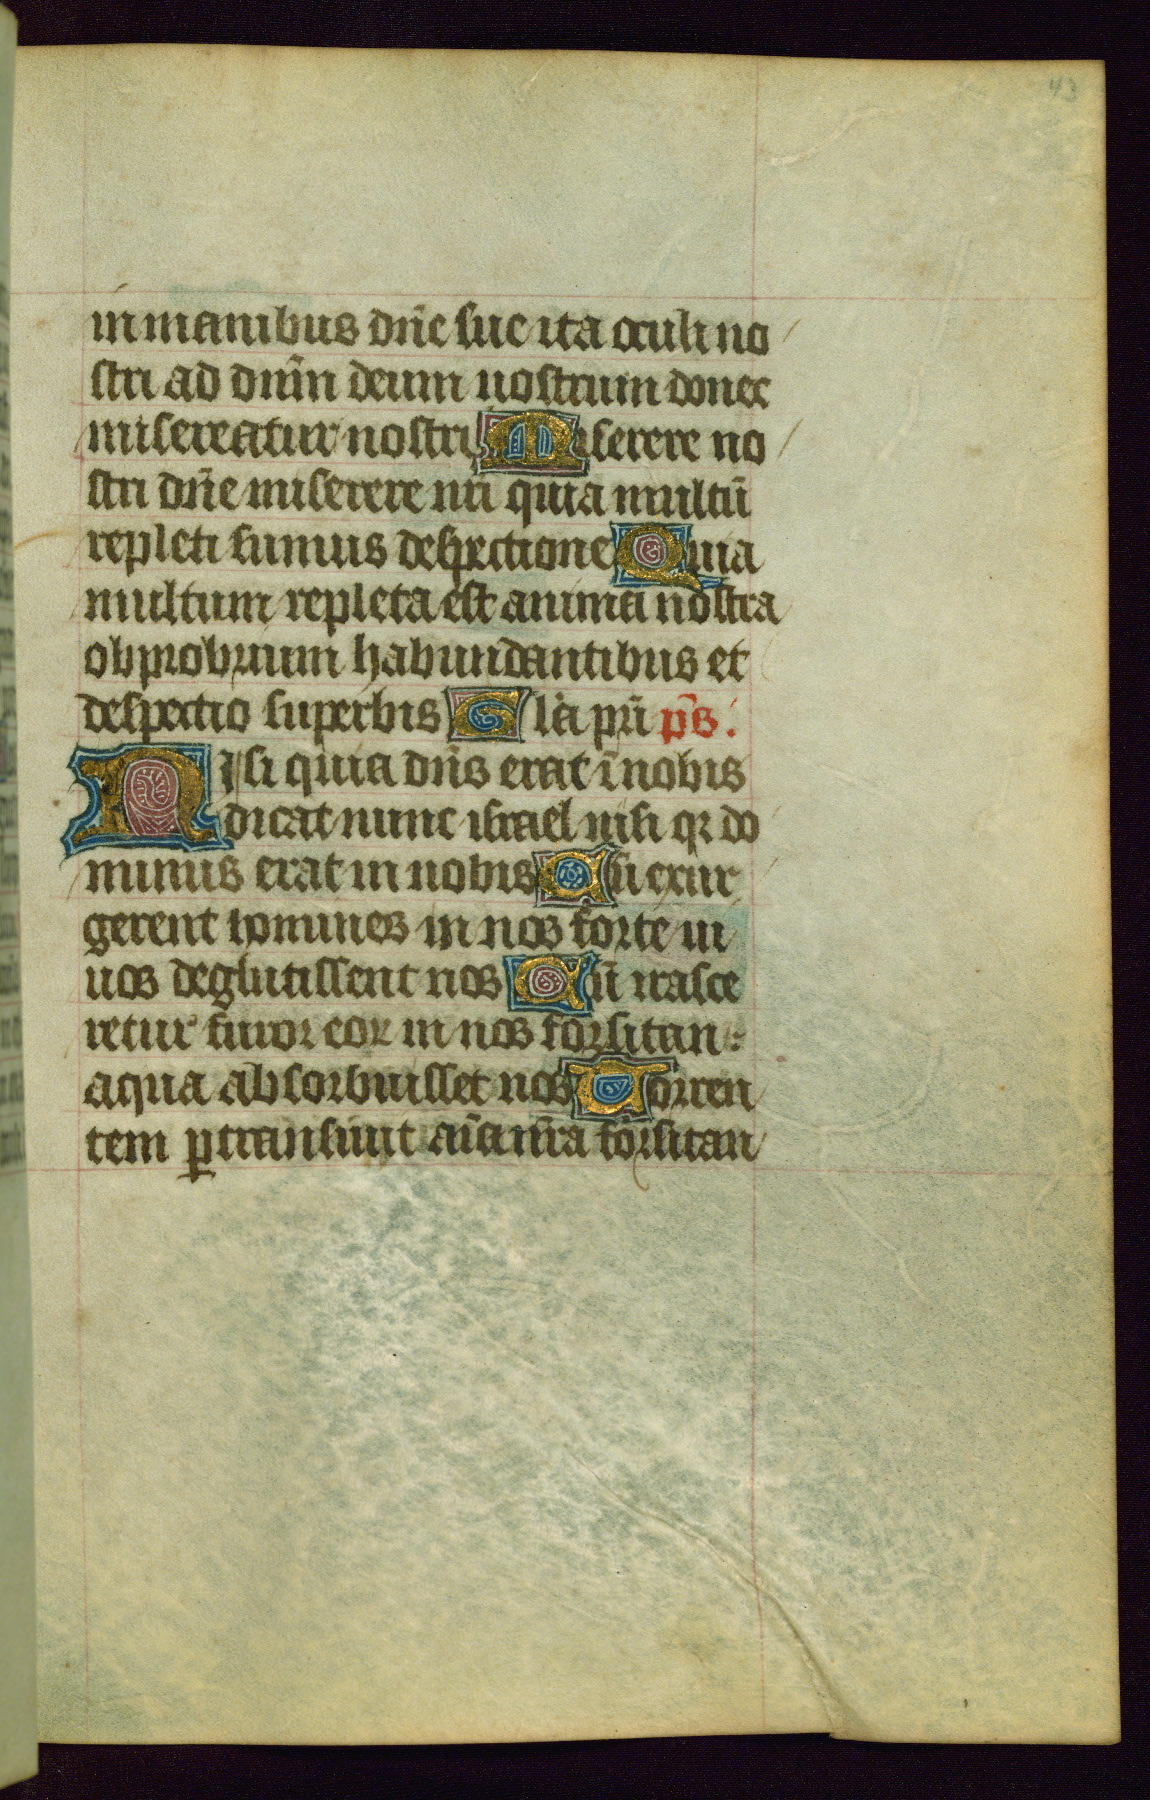 43
in manibus dn̄e sue ita oculi no
stri ad dn̄m deum nostrum donec
misereatur nostri Miserere no
stri dn̄e miserere nr̄i quia multū
repleti sumus despectione Quia
multum repleta est anima nostra
obprobrium habundantibus et
despectio superbis Gla pr̄i ps̄.
Nisi quia dn̄s erat ī nobis
dicat nunc israel nisi qꝛ do
minus erat in nobis Cū exur
gerent homines in nos forte ui
uos deglutissent nos Cū irasce
retur furor eoꝝ in nos forsitan
aqua absorbuisset nos Torren
tem ꝑtransiuit aīa nr̄a forsitan